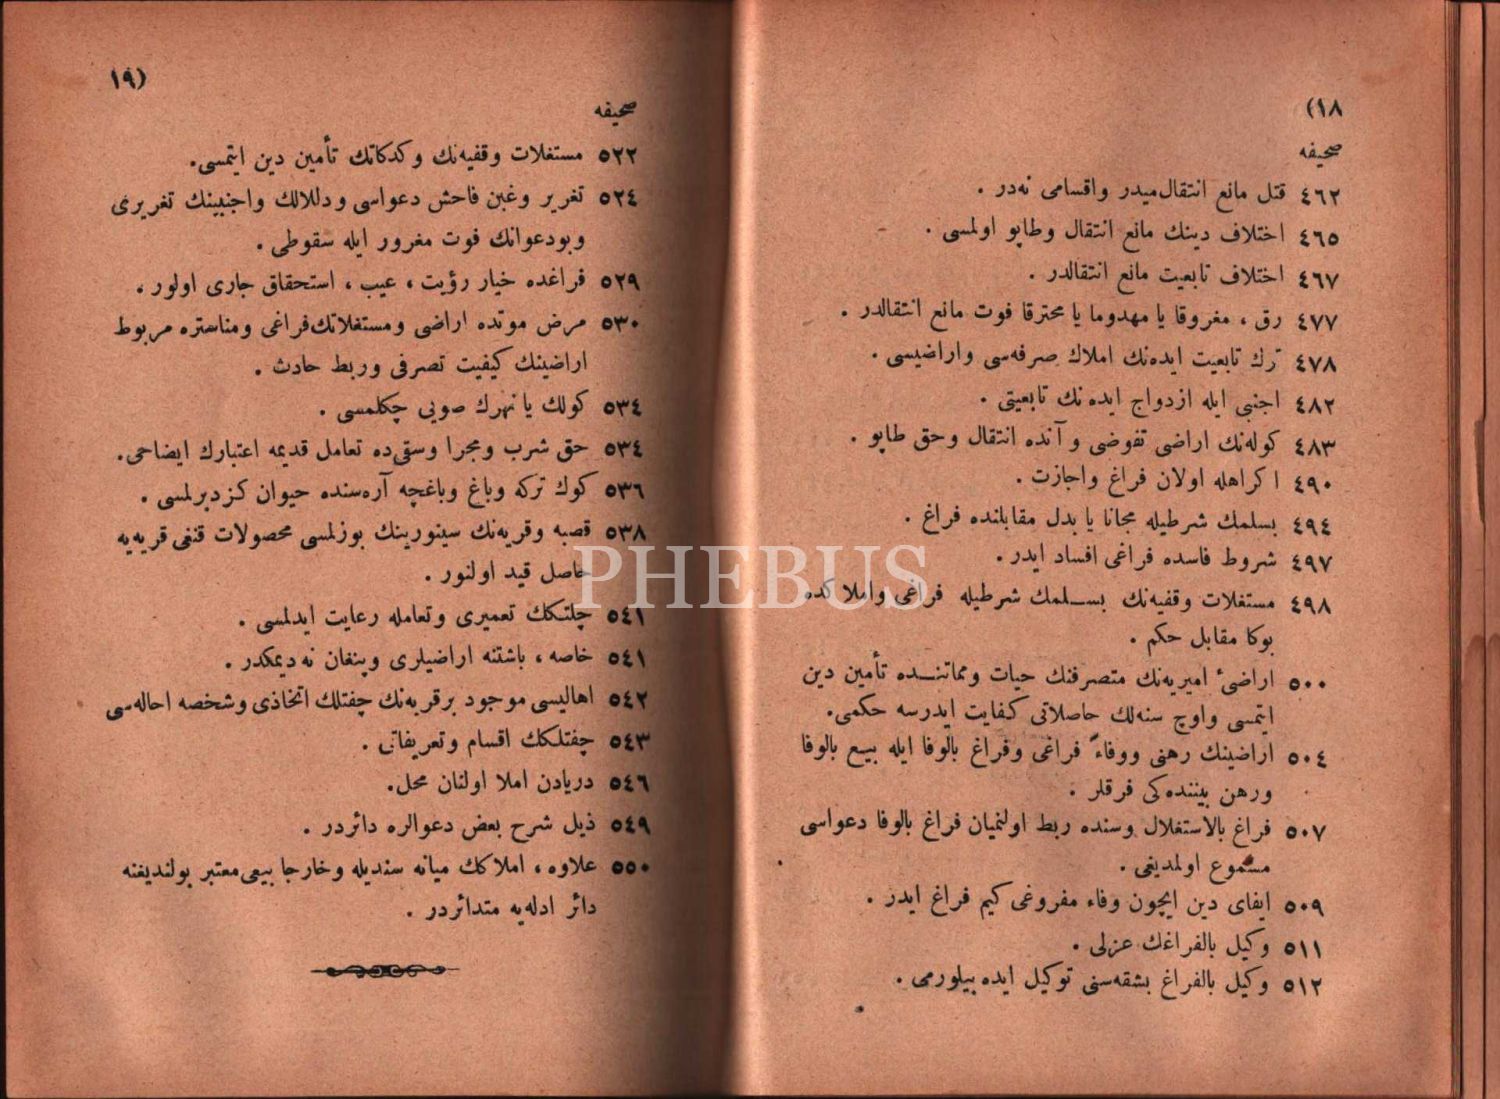 (١٨
صحيفه
٤٦٢ قتل مانع انتقال‌ميدر واقسامی نه‌در .
٤٦٥ اختلاف دينك مانع انتقال وطاپو اولمسی .
٤٦٧ اختلاف تابعيت مانع انتقالدر .
٤٧٧ رق ، مغروقا يا مهدوما يا محترقا فوت مانع انتقالدر .
٤٧٨ ترك تابعيت ايده‌نك املاك صرفه‌سی واراضيسی .
٤٨٢ اجنبی ايله ازدواج ايده‌نك تابعيتی .
٤٨٣ كوله‌نك اراضی تفوضی و آنده انتقال وحق طاپو .
٤٩٠ اكراهله اولان فراغ واجازت .
٤٩٤ بسلمك شرطيله مجانا يا بدل مقابلنده فراغ .
٤٩٧ شروط فاسده فراغی افساد ايدر .
٤٩٨ مستغلات وقفيه‌نك بسلمك شرطيله فراغی واملاكده
بوكا مقابل حكم .
٥٠٠ اراضیٔ اميريه‌نك متصرفنك حيات ومماتنده تأمين دين
ايتمسی واوچ سنه‌لك حاصلاتی كفايت ايدرسه حكمی.
٥٠٤ اراضينك رهنی ووفاءً فراغی وفراغ بالوفا ايله بيع بالوفا
ورهن بيننده‌كی فرقلر .
٥٠٧ فراغ بالاستغلال وسنده ربط اولنميان فراغ بالوفا دعواسی
مسموع اولمديغی .
٥٠٩ ايفای دين ايچون وفاء مفروغی كيم فراغ ايدر .
٥١١ وكيل بالفراغك عزلی .
٥١٢ وكيل بالفراغ بشقه‌سنی توكيل ايده بيلورمی .
(١٩
صحيفه
٥٢٢ مستغلات وقفيه‌نك وكدكاتك تأمين دين ايتمسی.
٥٢٤ تغرير وغبن فاحش دعواسی ودلالك واجنبينك تغريری
وبودعوانك فوت مغرور ايله سقوطی .
٥٢٩ فراغده خيار رؤيت ، عيب ، استحقاق جاری اولور .
٥٣٠ مرض موتده اراضی ومستغلاتك‌فراغی ومناستره مربوط
اراضينك كيفيت تصرفی وربط حادث .
٥٣٤ كولك يا نهرك صويی چكلمسی .
٥٣٤ حق شرب ومجرا وستی‌ده تعامل قديمه اعتبارك ايضاحی.
٥٣٦ كوك تركه وباغ وباغچه آره‌سنده حيوان كزديرلمسی .
٥٣٨ قصبه وقريه‌نك سينورينك بوزلمسی محصولات قنغی قريه‌يه
حاصل قيد اولنور .
٥٤١ چلتكك تعميری وتعامله رعايت ايدلمسی .
٥٤١ خاصه ، باشتنه اراضيلری وپنغان نه‌ديمكدر .
٥٤٢ اهاليسی موجود برقريه‌نك چفتلك اتخاذی وشخصه احاله‌سی
٥٤٣ چفتلكك اقسام وتعريفاتی .
٥٤٦ دريادن املا اولنان محل.
٥٤٩ ذيل شرح بعض دعوالره دائردر .
٥٥٠ علاوه ، املاكك ميانه سنديله وخارجا بيعی‌معتبر بولنديغنه
دائر ادله‌يه متدائردر .
PHEBUS